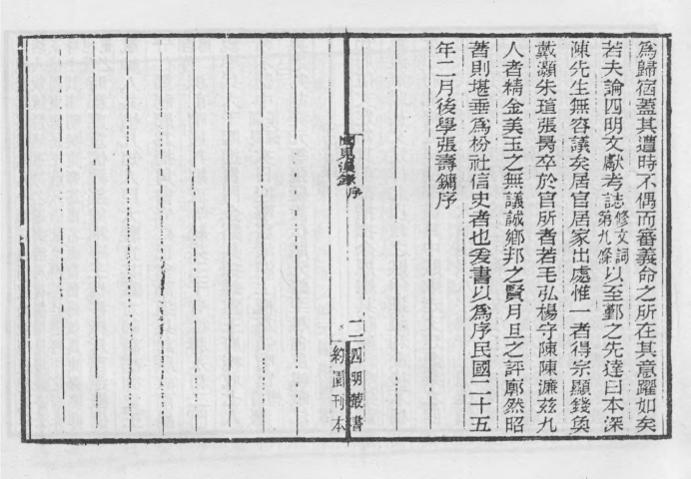 爲歸宿蓋其遭時不偶而審義命之所在其意躍如矣
若夫論四明文獻考誌修文詞第九條以至鄞之先達曰本深
陳先生無容議矣居官居家出處惟一者得宗顯錢奐
戴灝朱瑄張昺卒於官所者若毛弘楊守陳陳濂茲九
人者精金美玉之無議誠鄉邦之賢月旦之評廓然昭
著則堪垂爲枌社信史者也爰書以爲序民國二十五
年二月後學張壽鏞序
見漫錄序
二
四明叢書
約園刊本